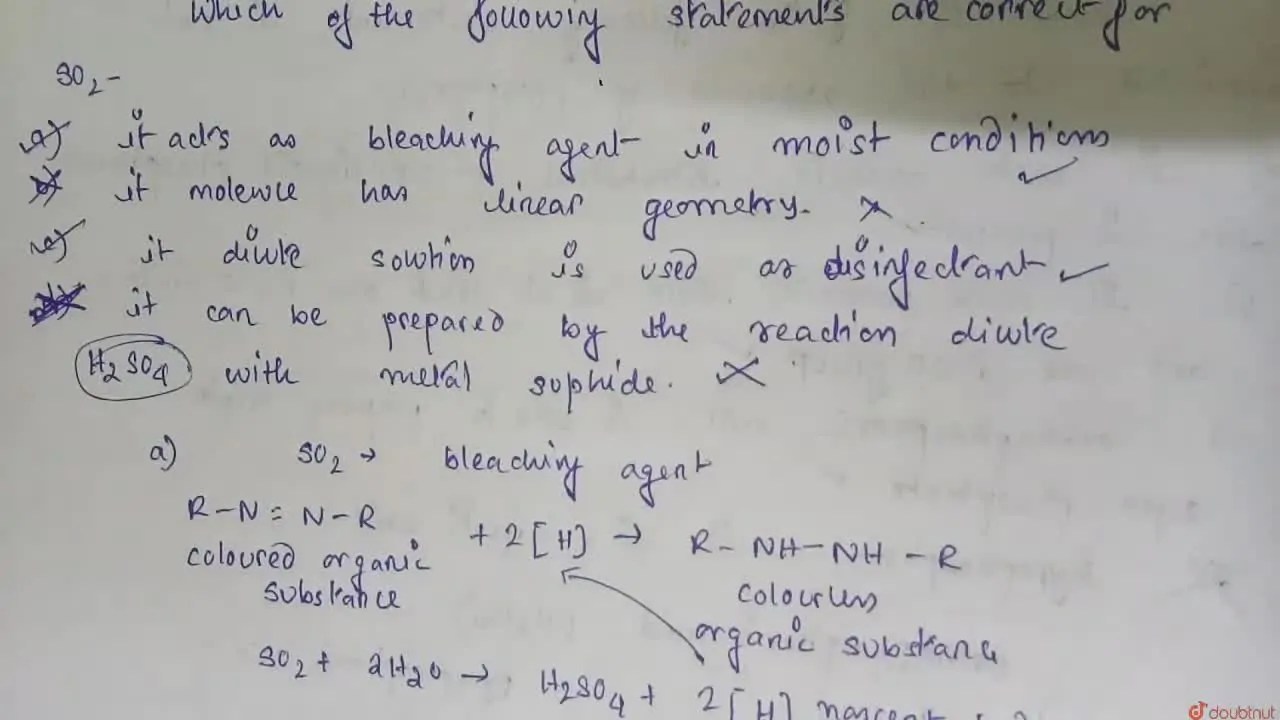 Which of the following statements are correct for
SO2 -
a) it acts as bleaching agent in moist conditions ✓
b) it molecule has linear geometry. ×
c) it dilute solution is used as disinfectant ✓
it can be prepared by the reaction dilute
H2SO4 with metal suphide. ×
a) SO2 → bleaching agent
R-N=N-R + 2[H] → R-NH-NH-R
coloured organic substance
colourless organic substance
SO2 + 2H2O → H2SO4 + 2[H]
doubtnut